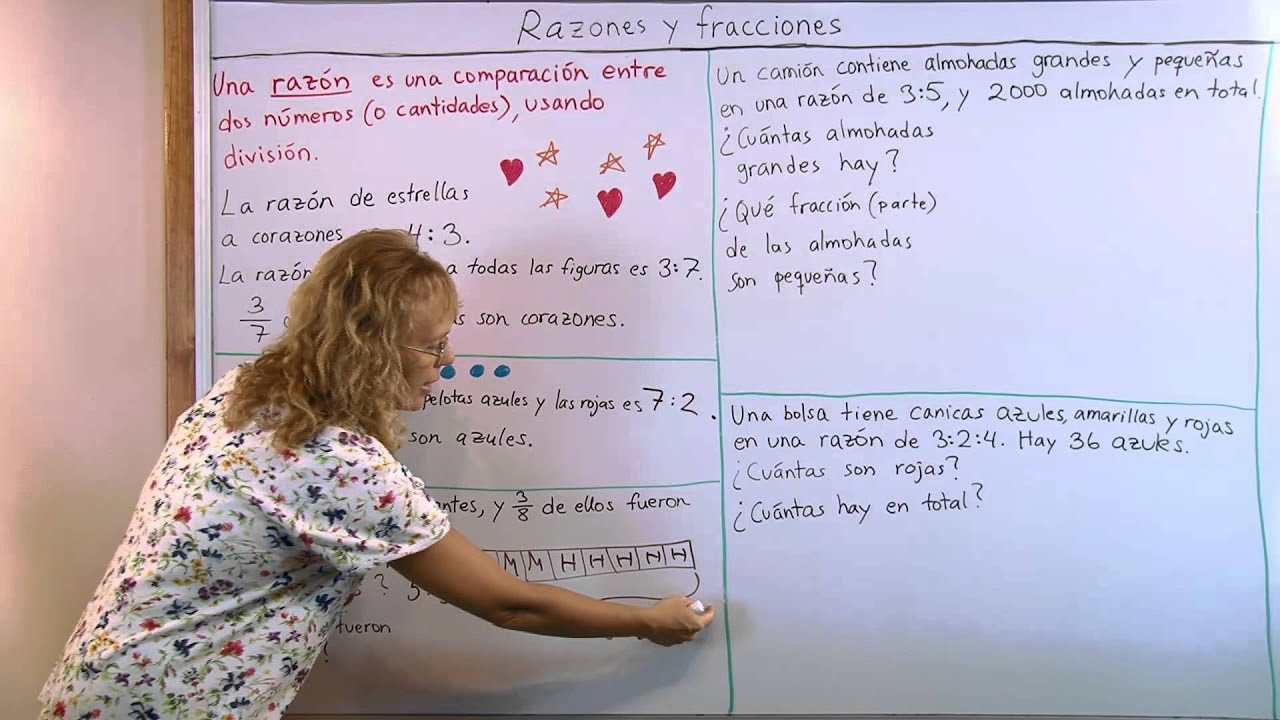 Razones y fracciones
Una razón es una comparación entre
dos números (o cantidades), usando
división.
La razón de estrellas
a corazones 4:3.
La razón a todas las figuras es 3:7.
3/7 son corazones.
pelotas azules y las rojas es 7:2.
son azules.
y 3/8 de ellos fueron
M M H H H H H
?
fueron
?
Un camión contiene almohadas grandes y pequeñas
en una razón de 3:5, y 2000 almohadas en total.
¿Cuántas almohadas
grandes hay?
¿Qué fracción (parte)
de las almohadas
son pequeñas?
Una bolsa tiene canicas azules, amarillas y rojas
en una razón de 3:2:4. Hay 36 azules.
¿Cuántas son rojas?
¿Cuántas hay en total?